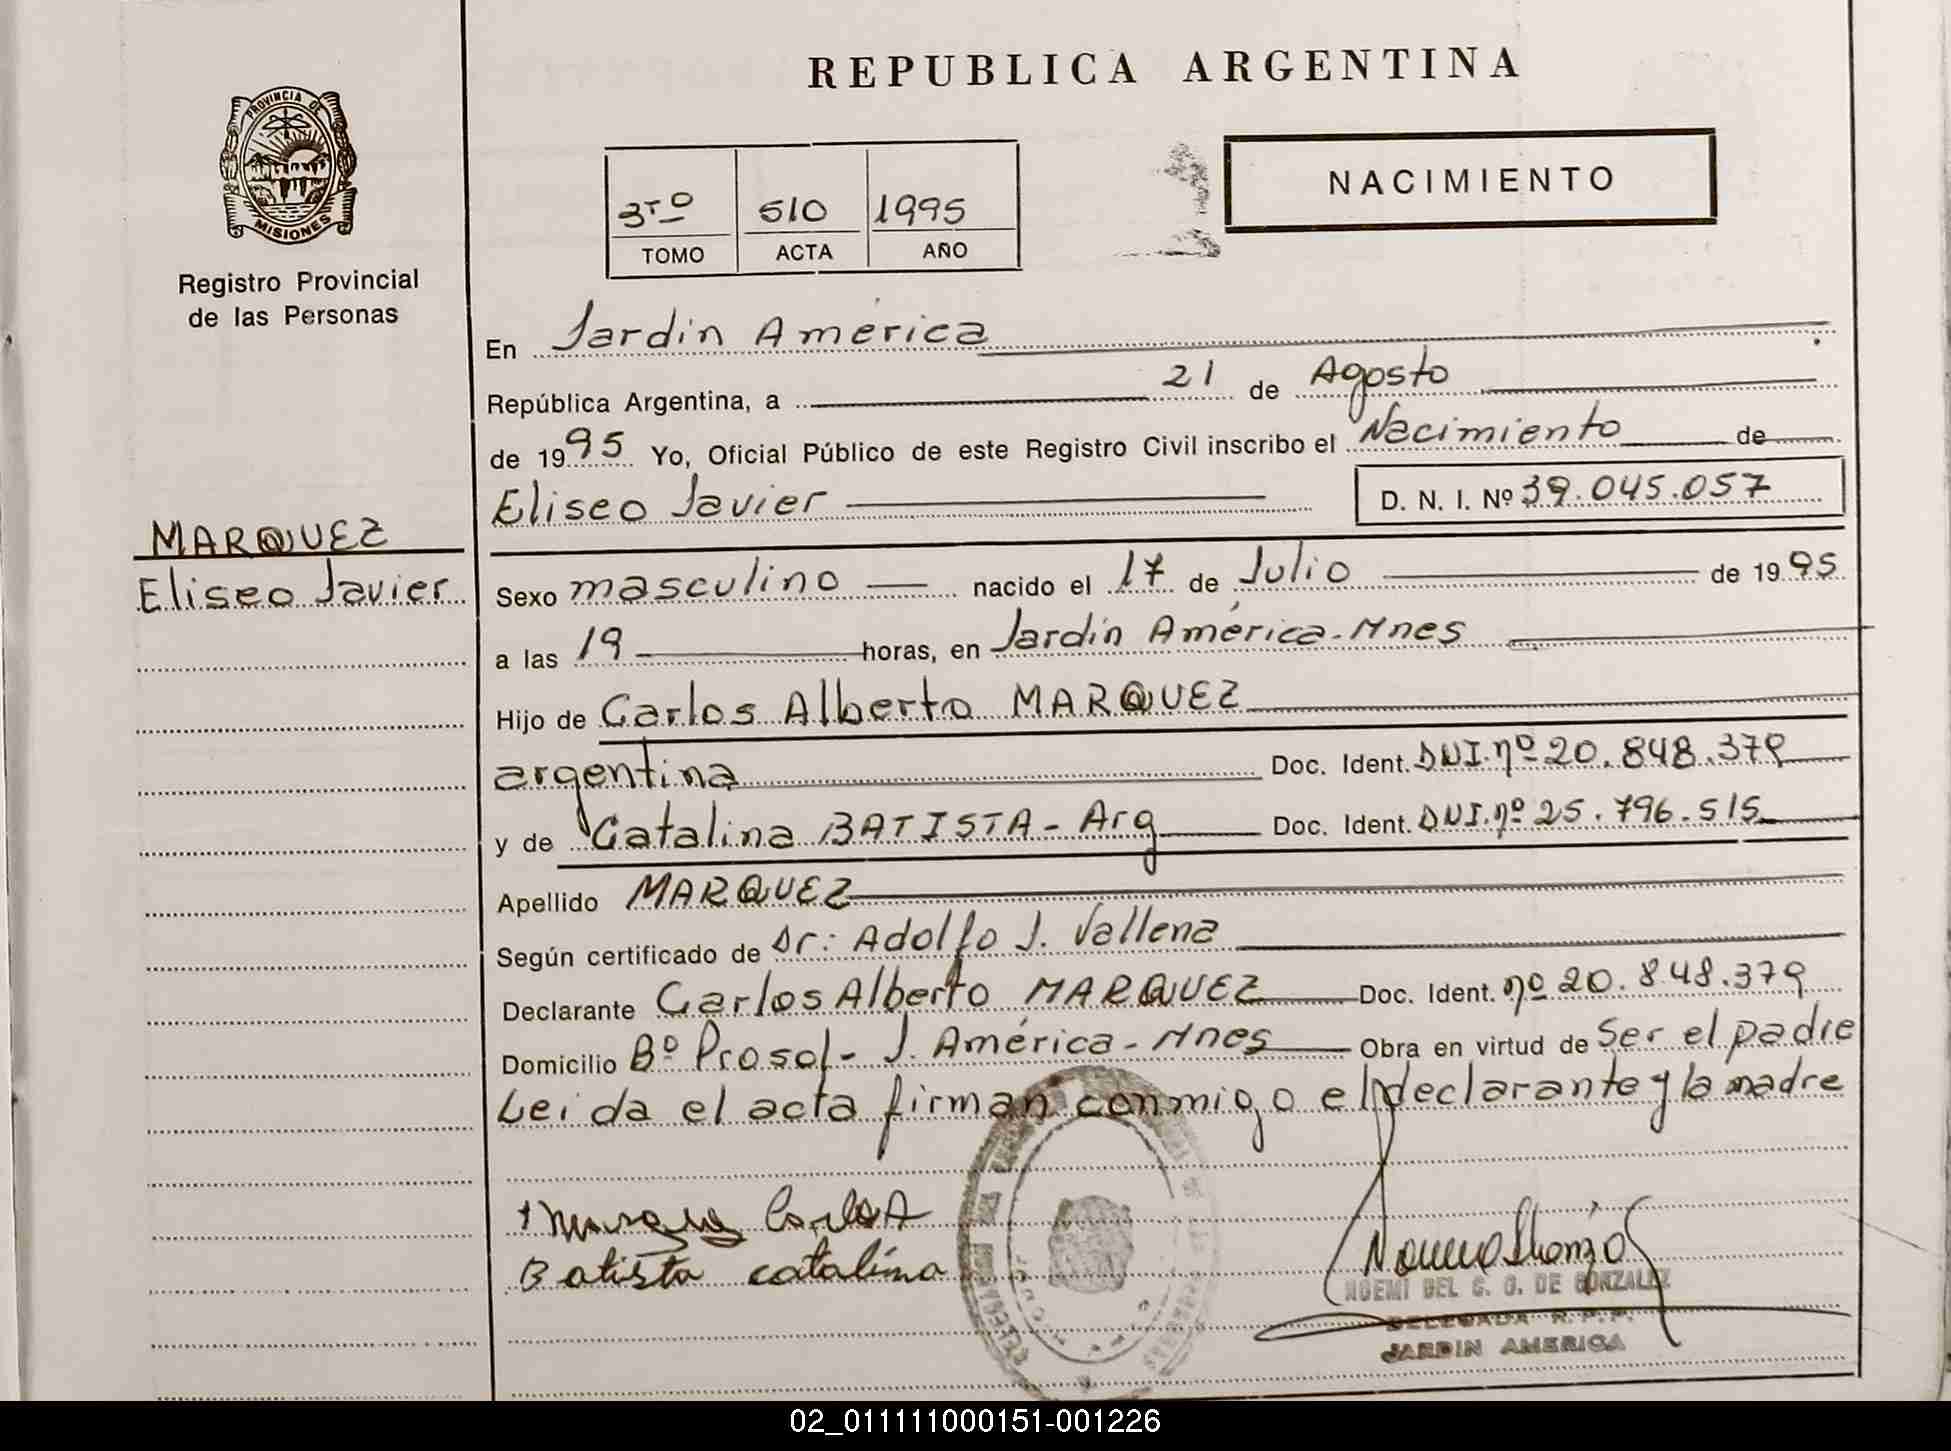 REPUBLICA ARGENTINA
PROVINCIA DE
MISIONES
Registro Provincial
de las Personas
3ro 510 1995
TOMO ACTA AÑO
NACIMIENTO
En Jardín América
República Argentina, a 21 de Agosto
de 1995 Yo, Oficial Público de este Registro Civil inscribo el Nacimiento de
Eliseo Javier D. N. I. Nº 39.045.057
MARQUEZ
Eliseo Javier
Sexo masculino nacido el 17 de Julio de 1995
a las 19 horas, en Jardín América-Mnes
Hijo de Carlos Alberto MARQUEZ
argentina Doc. Ident. DNI.nº 20.848.379
y de Catalina BATISTA - Arg Doc. Ident. DNI.nº 25.796.515
Apellido MARQUEZ
Según certificado de Dr: Adolfo J. Vallena
Declarante Carlos Alberto MARQUEZ Doc. Ident. nº 20.848.379
Domicilio Bº Prosol - J. América - Mnes Obra en virtud de Ser el padre
Leida el acta firman conmigo el declarante y la madre
Batista catalina
NOEMI DEL C. G. DE GONZALEZ
DELEGADA R.P.P.
JARDIN AMERICA
02_011111000151-001226